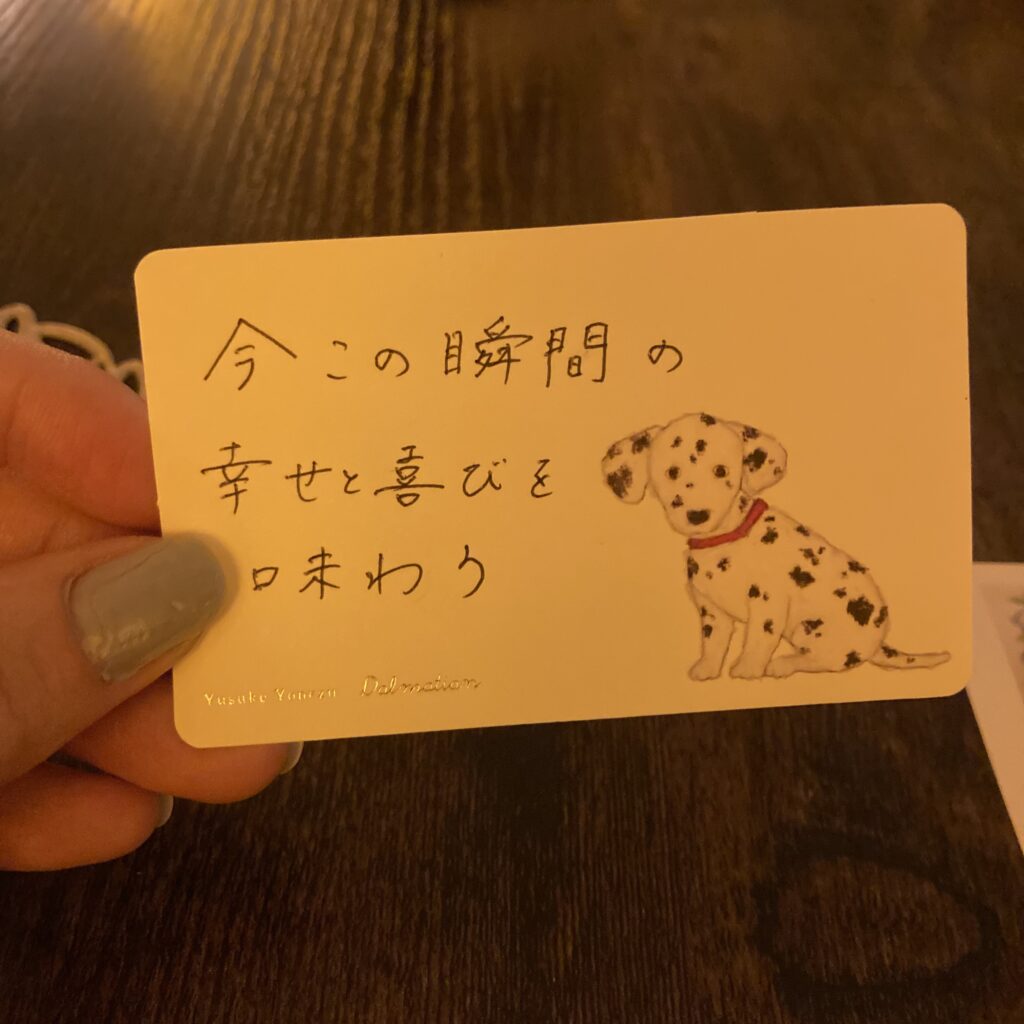 今この瞬間の
幸せと喜びを
味わう
Yusuke Yonezu Dalmatian